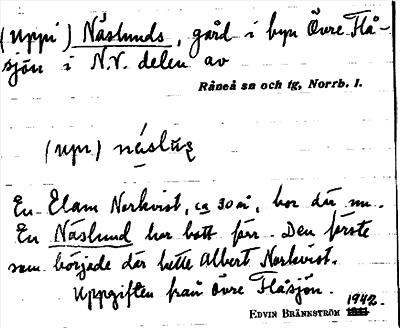 (uppi) Näslunds, gård i byn Övre Flå-
sjön i N.V. delen av
Råneå sn och tg, Norrb. l.
(upn.) náslu̢z
En Elam Norkvist, ca 30 år, bor där nu.
En Näslund har bott förr. Den förste
som började där hette Albert Norkvist.
Uppgiften från Övre Flåsjön.
1942.
EDVIN BRÄNNSTRÖM